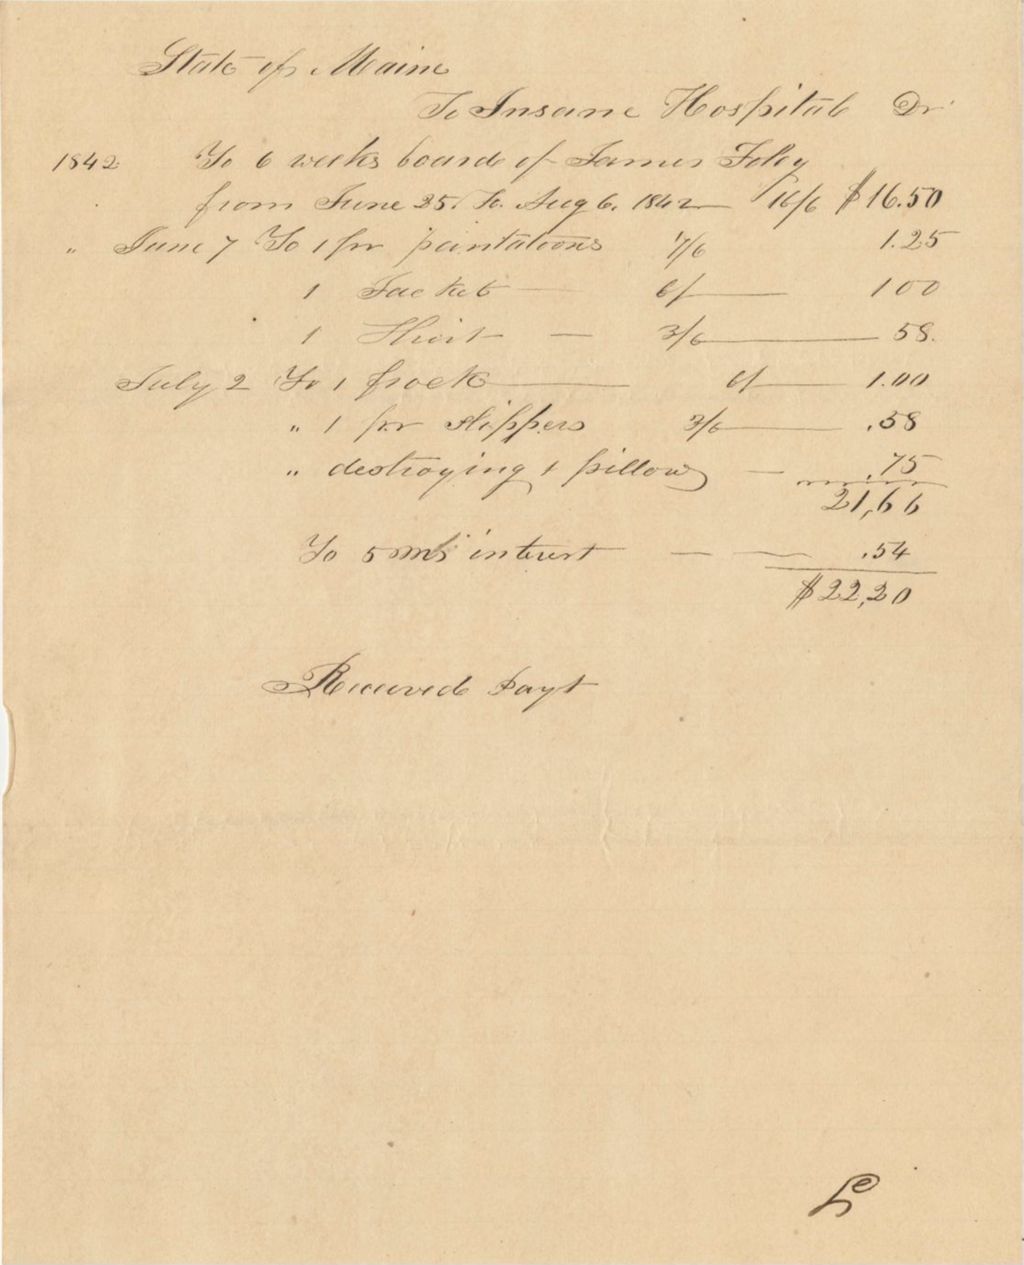 State of Maine
To Insane Hospital Dr.
1842 To 6 weeks board of James Foley
from June 25. to. Aug 6. 1842 16/6 $16.50
" June 7 To 1 pr pantaloons 7/6 1.25
1 Jacket 6/ 100
1 Shirt 3/6 58.
July 2 To 1 frock 6/ 1.00
" 1 pr slippers 3/6 .58
" destroying 1 pillow .75
21,66
To 5 ms interest .54
$22,20
Received payt